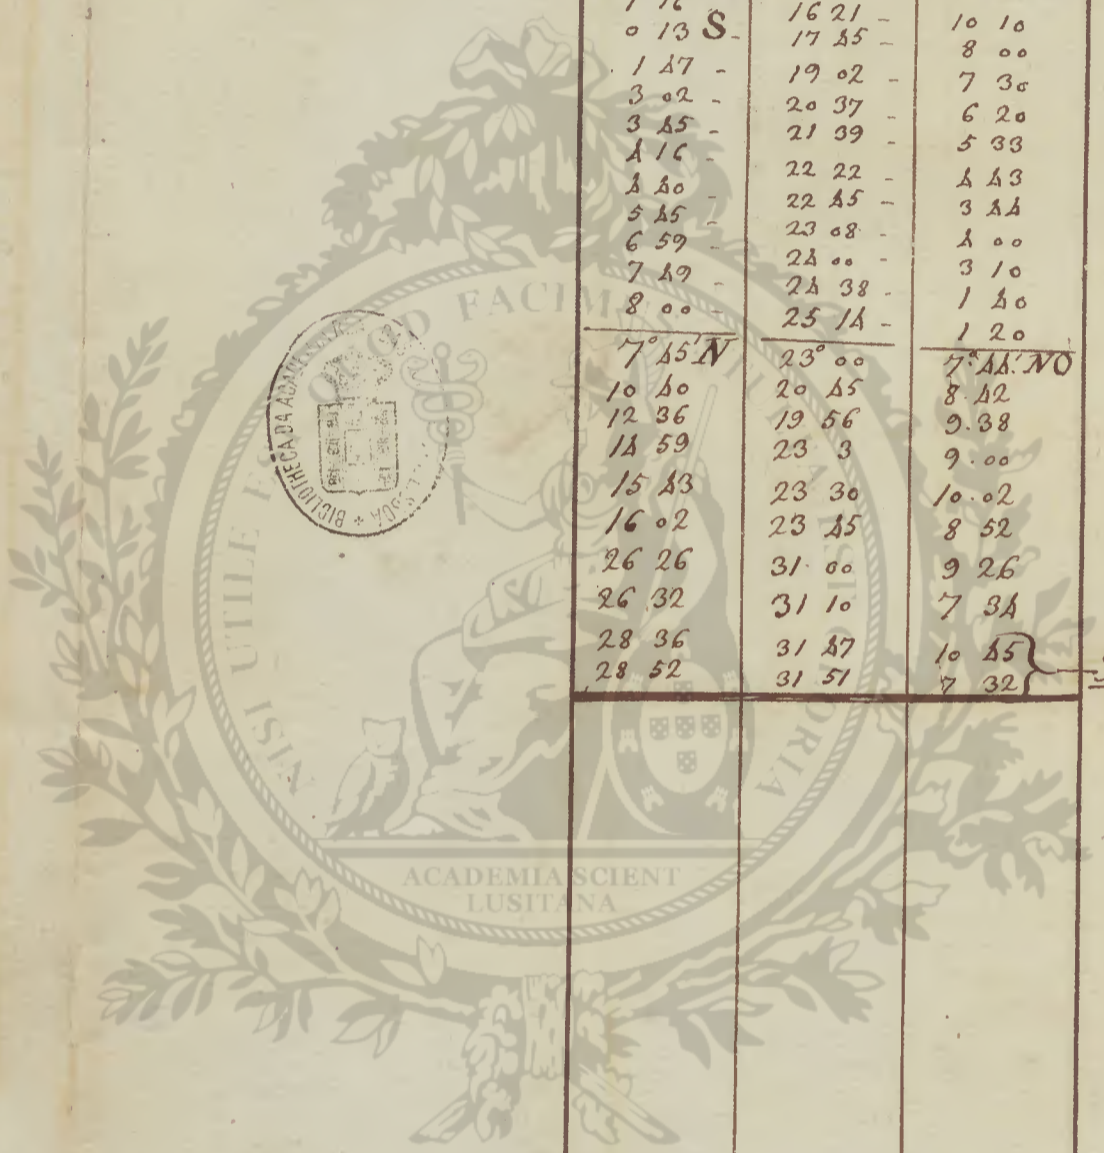 1 16 16 21 - 10 10
0 13 S - 17 45 - 8 00
1 47 - 19 02 - 7 30
3 02 - 20 37 - 6 20
3 45 - 21 39 - 5 33
4 16 - 22 22 - 4 43
4 40 - 22 45 - 3 44
5 45 - 23 08 - 4 00
6 59 - 24 00 - 3 10
7 49 - 24 38 - 1 40
8 00 - 25 14 - 1 20
7° 45' N 23° 00 7° 44' NO
10 40 20 45 8.42
12 36 19 56 9.38
14 59 23 3 9.00
15 43 23 30 10.02
16 02 23 45 8 52
26 26 31.00 9 26
26 32 31 10 7 34
28 36 31 47 10 45
28 52 31 51 7 32
BIBLIOTHECA DA ACADEMIA
NISI UTILE QUOD FACIMUS
GLORIA
ACADEMIA SCIENT
LUSITANA